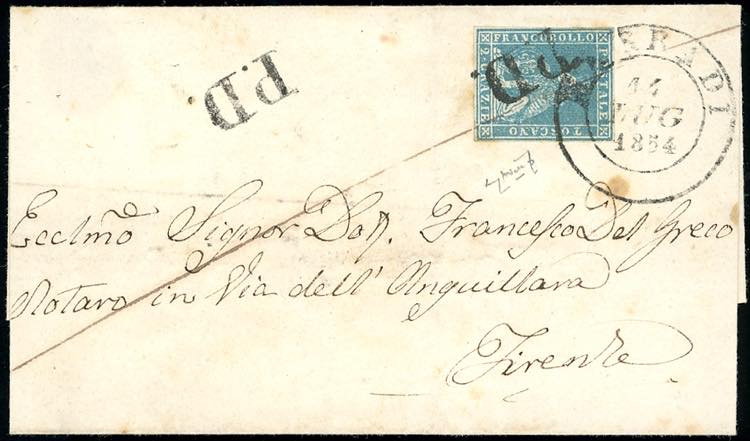 P.D.
FRANCOBOLLO
POSTALE
TOSCANO
2 CRAZIE
P.D.
MARRADI
14
LUG
1854
Ecclmõ Signor Dott. Francesco Del Greco
Notaro in Via dell'Anguillara
Firenze